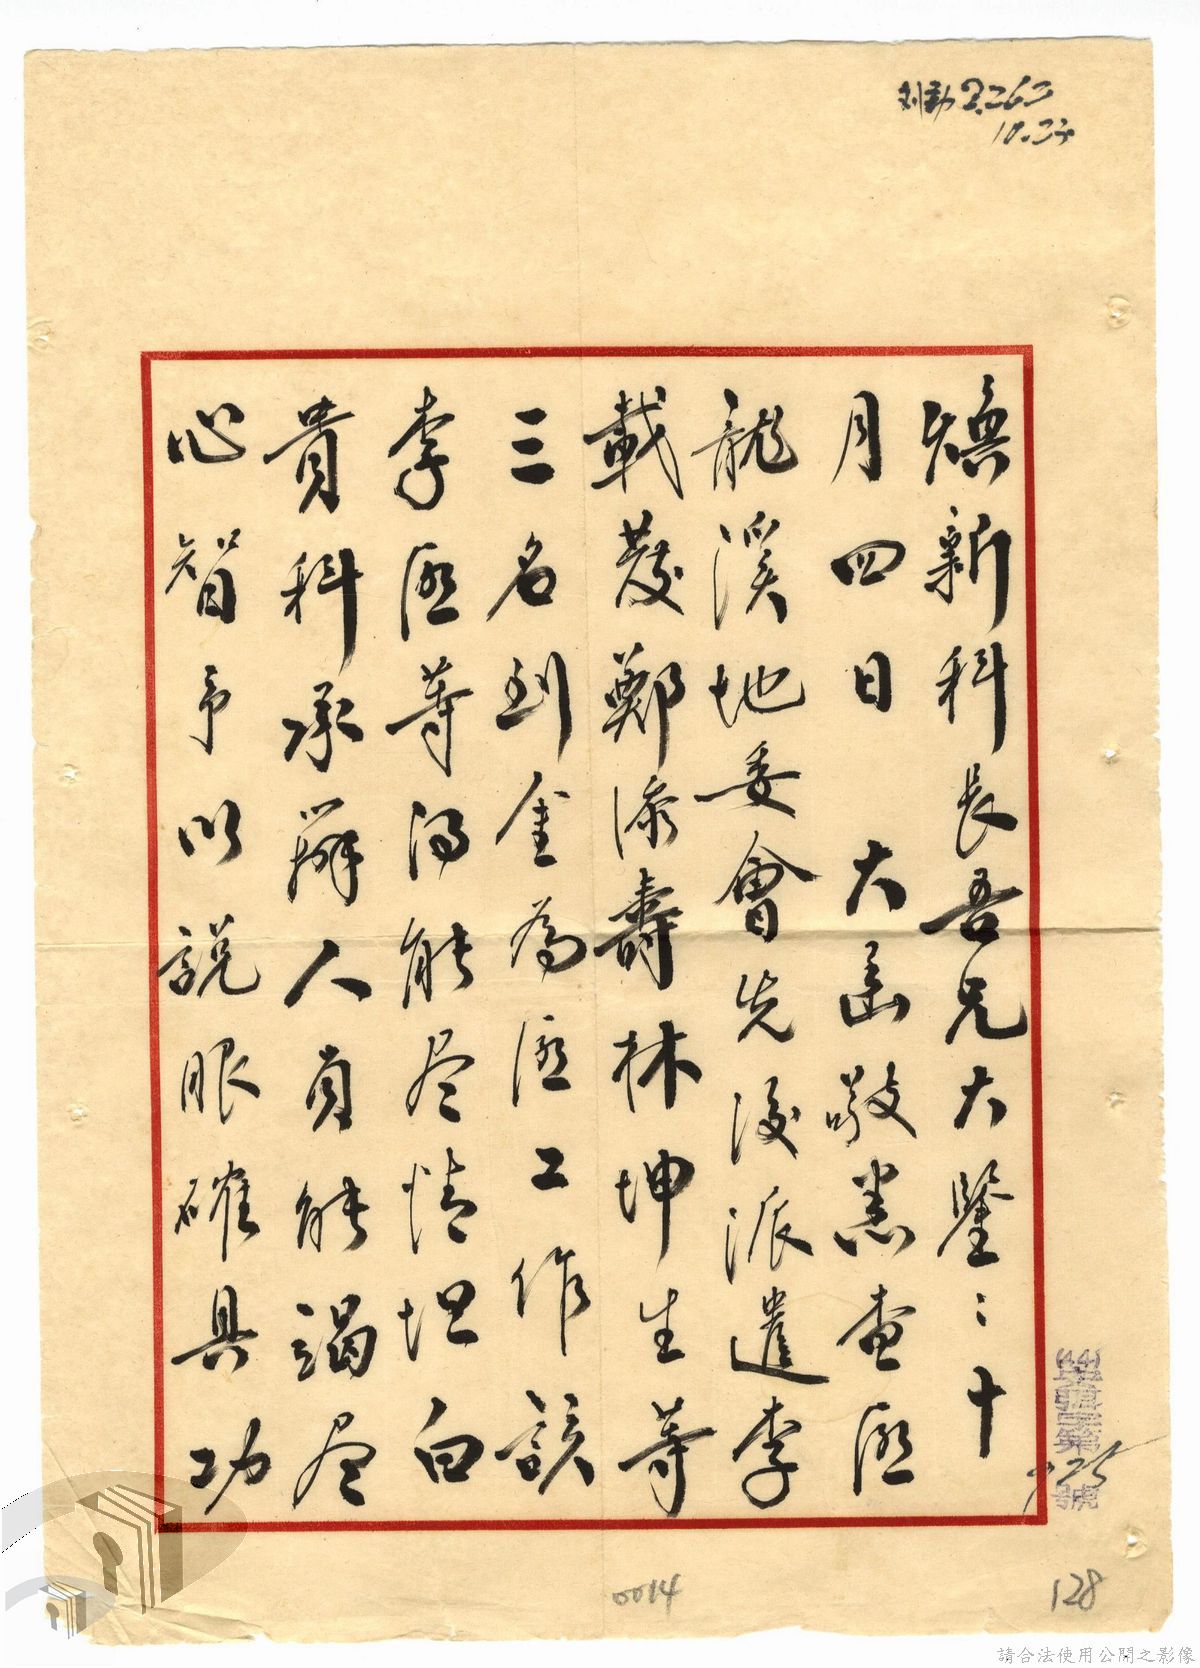 2262
10.23
煥新科長吾兄大鑒：十
月四日　大函敬悉查匪
龍溪地委會先後派遣李
載發鄭添壽林坤生等
三名到金為匪工作該
李匪等得能尽情坦白
貴科承辦人員能竭尽
心智予以說服確具功
號
725
0014
128
請合法使用公開之影像